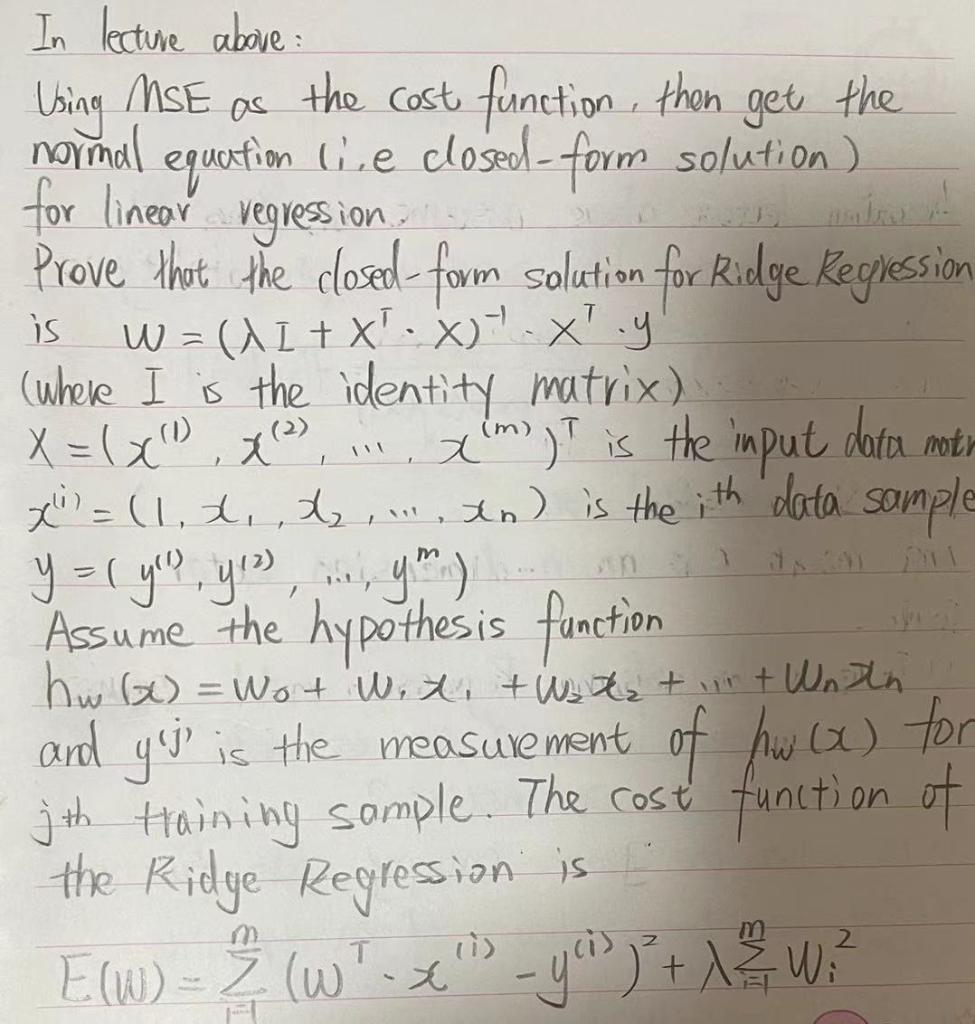 In lecture above:
Using MSE as the cost function, then get the
normal equation (i.e closed-form solution)
for linear regression.
Prove that the closed-form solution for Ridge Regression
is w = (λI + Xᵀ · X)⁻¹ · Xᵀ · y
(where I is the identity matrix)
X = (x⁽¹⁾, x⁽²⁾, ..., x⁽ᵐ⁾)ᵀ is the input data matr
x⁽ⁱ⁾ = (1, x₁, x₂, ..., xₙ) is the iᵗʰ data sample
y = (y⁽¹⁾, y⁽²⁾, ..., yᵐ)
Assume the hypothesis function
h_w(x) = w₀ + w₁x₁ + w₂x₂ + ... + wₙxₙ
and y⁽ʲ⁾ is the measurement of h_w(x) for
jth training sample. The cost function of
the Ridge Regression is
E(w) = Σ_{i=1}^{m} (wᵀ · x⁽ⁱ⁾ - y⁽ⁱ⁾)² + λ Σ_{i=1}^{m} wᵢ²